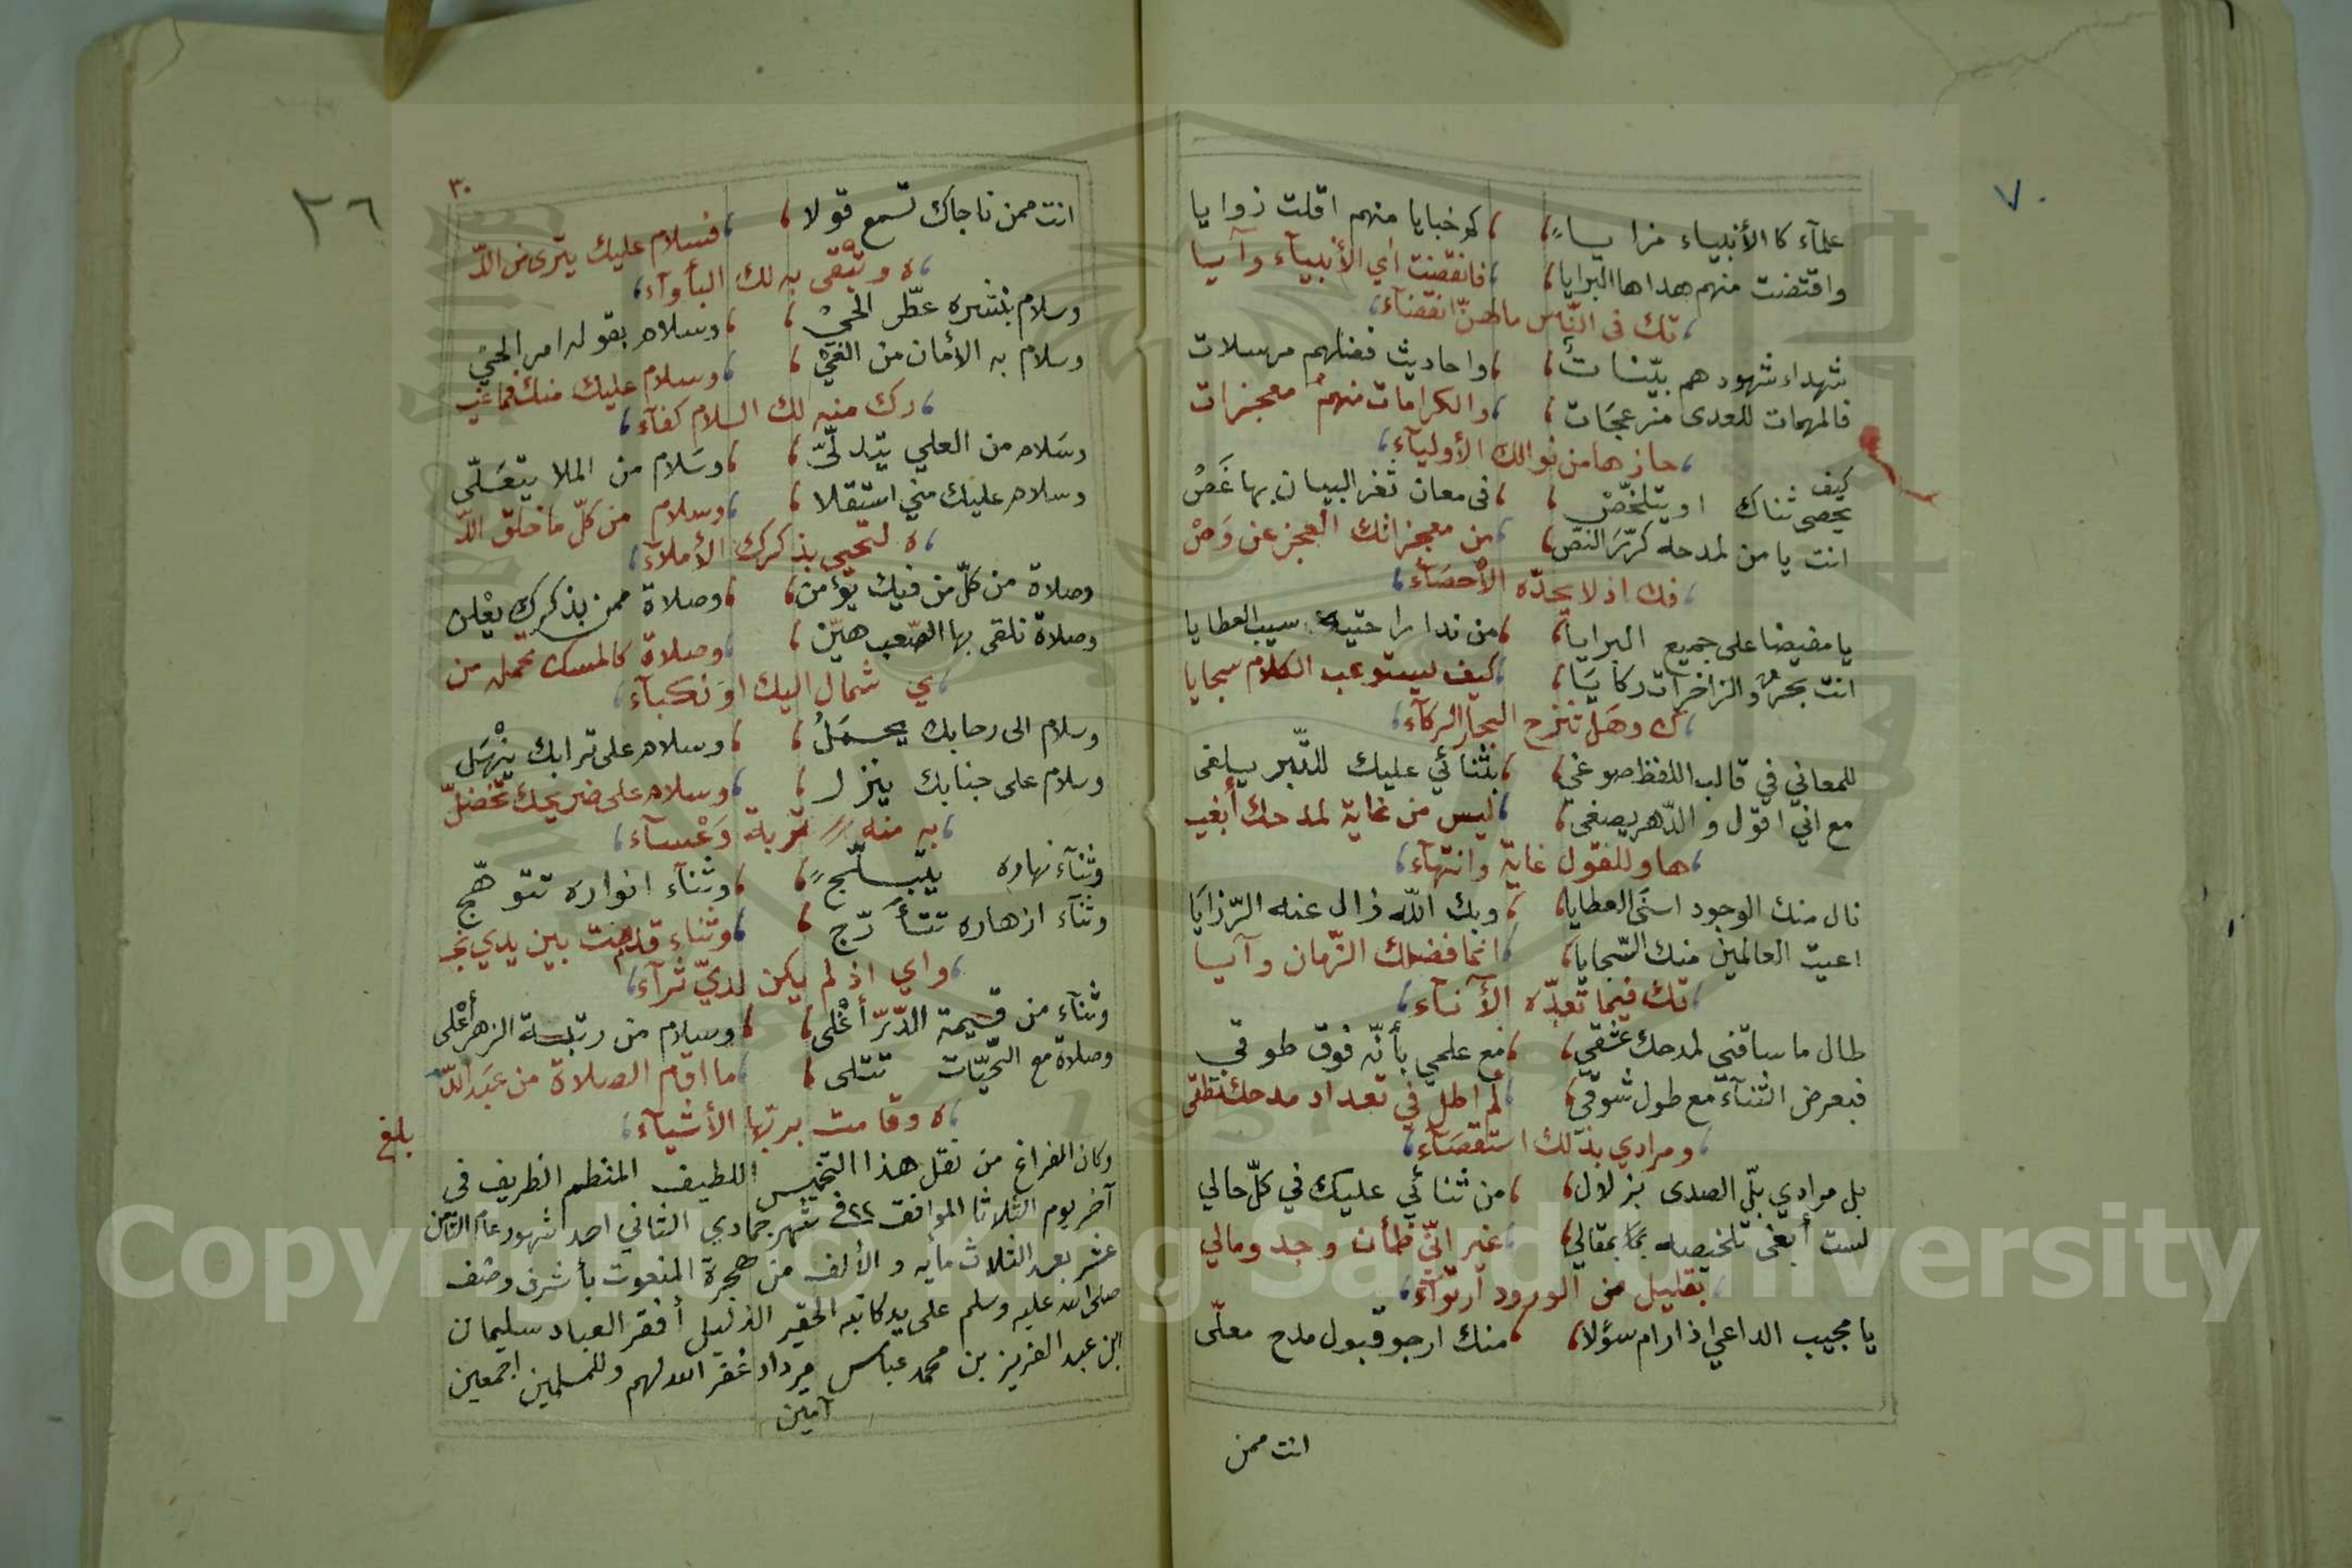 ٧٠
علمآء كا الأنبياء مزايـــاءً، ،كم خبايا منهم اقلت زوايا
واقتضت منهم هداها البرايا، ،فانقضت آي الأنبيآء وآيـا
،تك في النّاس مالهنّ انقضآء،
شهداء شهودهم بيّنات، ،واحاديث فضلهم مرسلات
فالمهمات للعدى مزعجَات، ،والكرامات منهمُ معجزات
،حازها من نوالك الأوليآء،
كيف
يحصى ثناك او يتلخّص، ،في معان ثغر البيان بها غَصّ
انت يا من لمدحه كرّرَ النصّ، ،من معجزاتك العجز عن وَصْ
،فك اذ لا يحدّه الأحصَآء،
يا مفيضا على جميع البرايا، ،من ندا راحتيه سيب العطايا
انت بحرٌ والزاخرات ركايَا، ،كيف يستوعب الكلام سجايا
،ك وهَل تنزح البحار الركآء،
للمعاني في قالب اللفظ صوغي، ،بثنائي عليك للتّبر يلقى
مع اني اقول والدّهر يصغى، ،ليس من غاية لمدحك أبغيـ
،ها وللقول غاية وانتهآء،
نال منك الوجود اسنَى العطايا، ،وبك اللّه زال عنه الرّزايَا
اعيت العالمين منك السّجايا، ،انما فضلك الزّمان وآيـا
،تك فيما تعدّه الآنآء،
طال ما ساقني لمدحك عشقي، ،مع علمي بأنّه فوق طوقي
فبعرض الثنآء مع طول شوقي، ،لم اطل في تعداد مدحك نطقى
،ومرادي بذلك استقصَآء،
بل مرادي بلّ الصدى بزلال، ،من ثنائي عليك في كلّ حالي
لست أبغى تلخيصه بمقالي، ،غير انّي ظمأن وجد ومالي
،بقليل من الورود ارتوآء،
يا مجيب الداعي اذا رام سؤلا، ،منك ارجو قبول مدح معلّى
انت ممن
٢٦
٣٠
انت ممن ناجاك تسمع قولا، ،فسلام عليك يترى من اللّـ
،ـه وتبقى به لك البأوآء،
وسلام بنشره عطّر الحيّ، ،وسلام بقوله امر الحيّ
وسلام به الأمان من الغيّ، ،وسلام عليك منك فما غيـ
،رك منه لك السلام كفآء،
وسَلام من العلي يتدلّى، ،وسَلام من الملا يتعَلّى
وسلام عليك مني استقلا، ،وسلام من كلّ ما خلق اللّـ
،ـه لتحيى بذكرك الأملآء،
وصلاة من كلّ من فيك يؤمن، ،وصلاة ممن بذكرك يعْلن
وصلاة نلقى بها الصّعب هيّن، ،وصلاة كالمسك تحمله من
،ي شمال اليك او نكبآء،
وسلام الى رحابك يحـمَلُ، ،وسلام على ترابك ينْهَل
وسلام على جنابك ينزل، ،وسلام على ضريحك تخضلّ
،به منه تربة وَعْسآء،
وثنآء نهاره يتبــلّجً، ،وثنآء انواره تتوهّج
وثنآء ازهاره تتأرّج، ،وثناء قدمت بين يدي نجـ
،واي اذ لم يكن لديّ ثرآء،
وثنآء من قيمة الدّرّ أغْلى، ،وسلام من رتبة الزهر أعْلى
وصلاة مع التحيّات تتلى، ،ما اقام الصلاة من عبَد اللّـ
،ـه وقامت بربّها الأشيآء،
بلغ
وكان الفراغ من نقل هذا التخميس اللطيف المنظم الظريف في
آخر يوم الثلاثا الموافق ٢٢ في شهر جمادي الثاني احد شهور عام الثامن
عشر بعد الثلاث مأيه والألف من هجرة المنعوت بأشرف وصف
صلى الله عليه وسلم على يد كاتبه الحقير الذليل أفقر العباد سليمان
ابن عبد العزيز بن محمد عباس مرداد غفر الله لهم وللمسلمين اجمعين
آمين
Copyright © King Saud University
1957